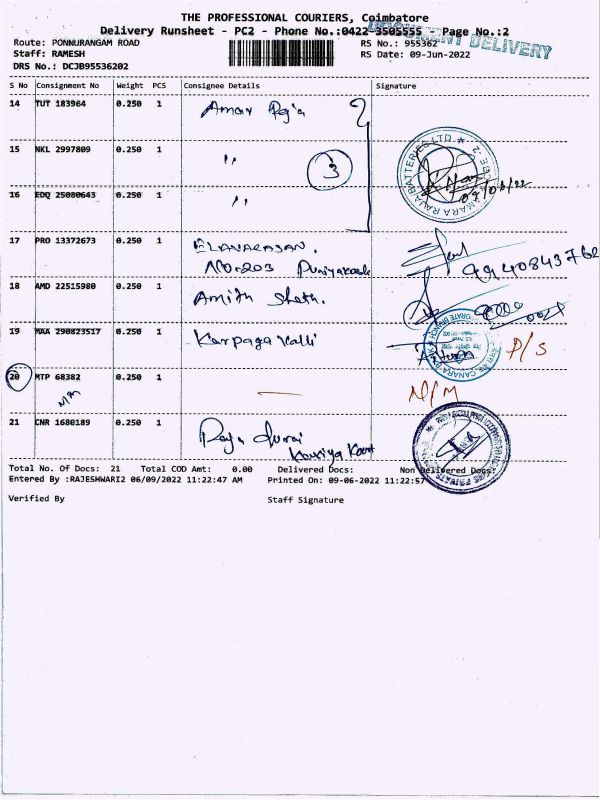 THE PROFESSIONAL COURIERS, Coimbatore
Delivery Runsheet - PC2 - Phone No.:0422 3505555 - Page No.:2
DOCUMENT DELIVERY
Route: PONNURANGAM ROAD RS No.: 955362
Staff: RAMESH RS Date: 09-Jun-2022
DRS No.: DCJB95536202
S No Consignment No Weight PCS Consignee Details Signature
14 TUT 183964 0.250 1 Amar Raja
15 NKL 2997809 0.250 1 " 3
16 EDQ 25080643 0.250 1 "
AMARA RAJA BATTERIES LTD
17 PRO 13372673 0.250 1 ELAVARASAN.
No-203
18 AMD 22515980 0.250 1 Amith Sheth.
19 MAA 290823517 0.250 1 Karpaga Valli P/S
CANARA BANK
20 MTP 68382 0.250 1 — N/M
21 CNR 1680189 0.250 1 Raja durai
Total No. Of Docs: 21 Total COD Amt: 0.00 Delivered Docs: Non Delivered Docs:
Entered By :RAJESHWARI2 06/09/2022 11:22:47 AM Printed On: 09-06-2022 11:22:57
Verified By Staff Signature